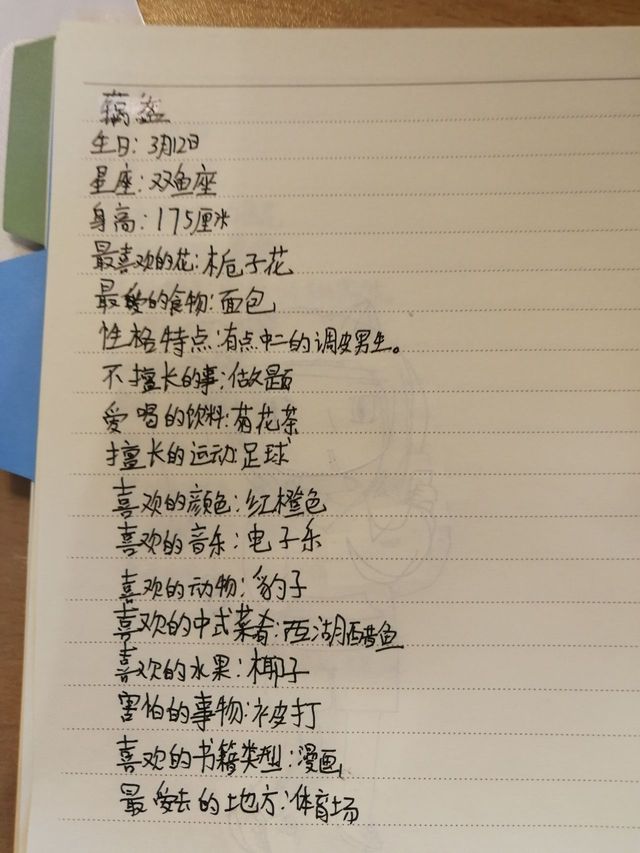 生日：3月12日
星座：双鱼座
身高：175厘米
最喜欢的花：栀子花
最爱的食物：面包
性格特点：有点中二的调皮男生。
不擅长的事：做题
爱喝的饮料：菊花茶
擅长的运动：足球
喜欢的颜色：红橙色
喜欢的音乐：电子乐
喜欢的动物：豹子
喜欢的中式菜肴：西湖醋鱼
喜欢的水果：椰子
害怕的事物：被打
喜欢的书籍类型：漫画
最爱去的地方：体育场